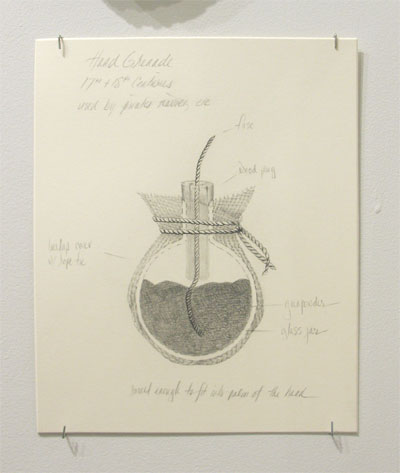 Hand Grenade
17TH + 18TH Centuries
used by pirates, navies, etc
fuse
wood plug
cover
w/ rope tie
gunpowder
glass jar
small enough to fit into palm of the hand